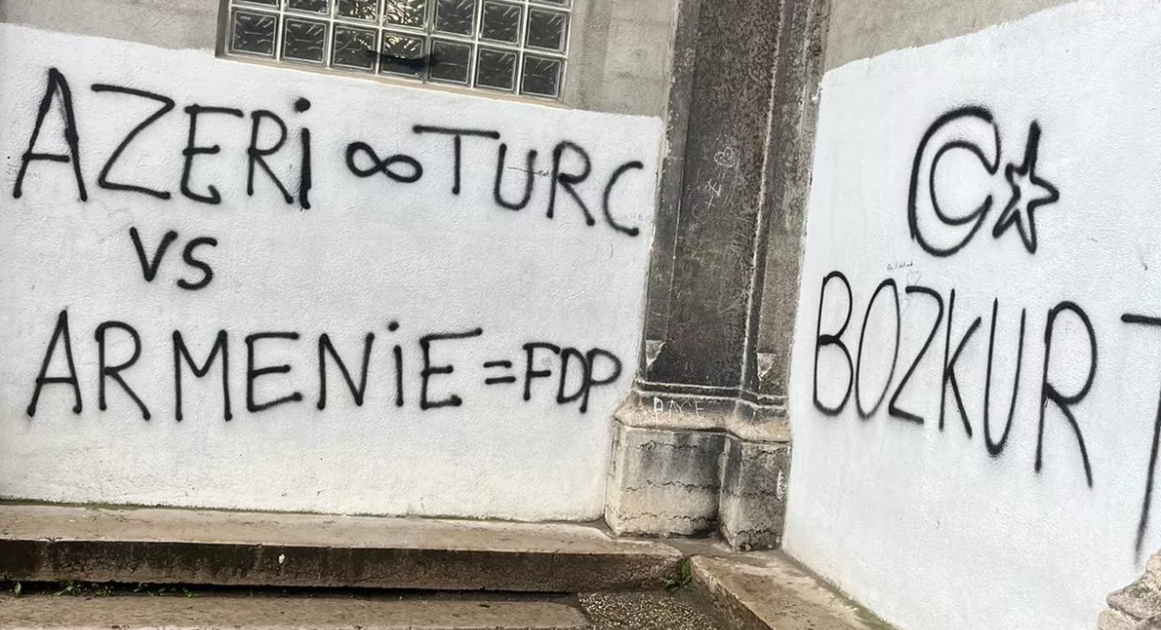 AZERi ∞ TURC
VS
ARMENiE = FDP
BOZKURT
PAGE